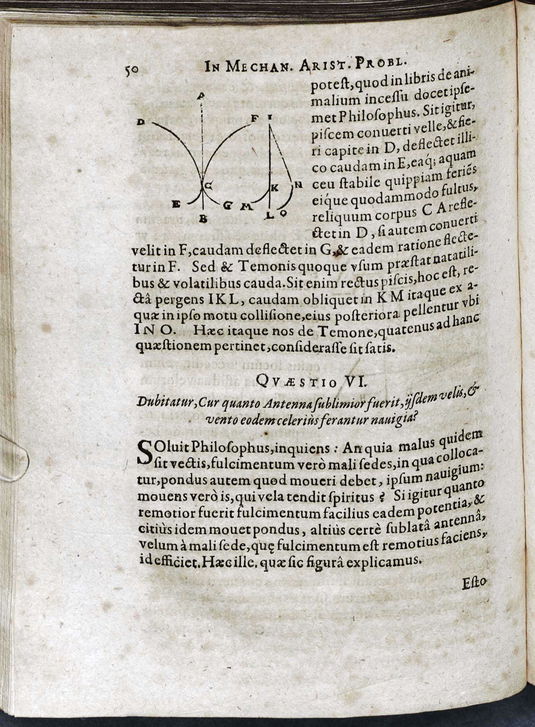 50 IN MECHAN. ARIST. PROBL.
potest, quod in libris de ani-
malium incessu docet ipse-
met Philosophus. Sit igitur,
piscem conuerti velle, & fie-
ri capite in D, deflectet illi-
co caudam in E, eaq; aquam
ceu stabile quippiam feriẽs
eique quodammodo fultus,
reliquum corpus C A refle-
ctet in D, si autem conuerti
velit in F, caudam deflectet in G, & eadem ratione flecte-
tur in F. Sed & Temonis quoque vsum præstat natatili-
bus & volatilibus cauda. Sit enim rectus piscis, hoc est, re-
ctà pergens I K L, caudam obliquet in K M itaque ex a-
quæ in ipso motu collisione, eius posteriora pellentur vbi
I N O. Hæc itaque nos de Temone, quatenus ad hanc
quæstionem pertinet, considerasse sit satis.
A
D F I
C K N
E G M
B L O
QVÆSTIO VI.
Dubitatur, Cur quanto Antenna sublimior fuerit, ijsdem velis, &
vento eodem celeriùs ferantur nauigia?
SOluit Philosophus, inquiens: An quia malus quidem
sit vectis, fulcimentum verò mali sedes, in qua colloca-
tur, pondus autem quod moueri debet, ipsum nauigium:
mouens verò is, qui vela tendit spiritus? Si igitur quanto
remotior fuerit fulcimentum facilius eadem potentia, &
citiùs idem mouet pondus, altiùs certè sublatâ antennâ,
velum à mali sede, quę fulcimentum est remotius faciens,
id efficiet. Hæc ille, quæ sic figurâ explicamus.
Esto